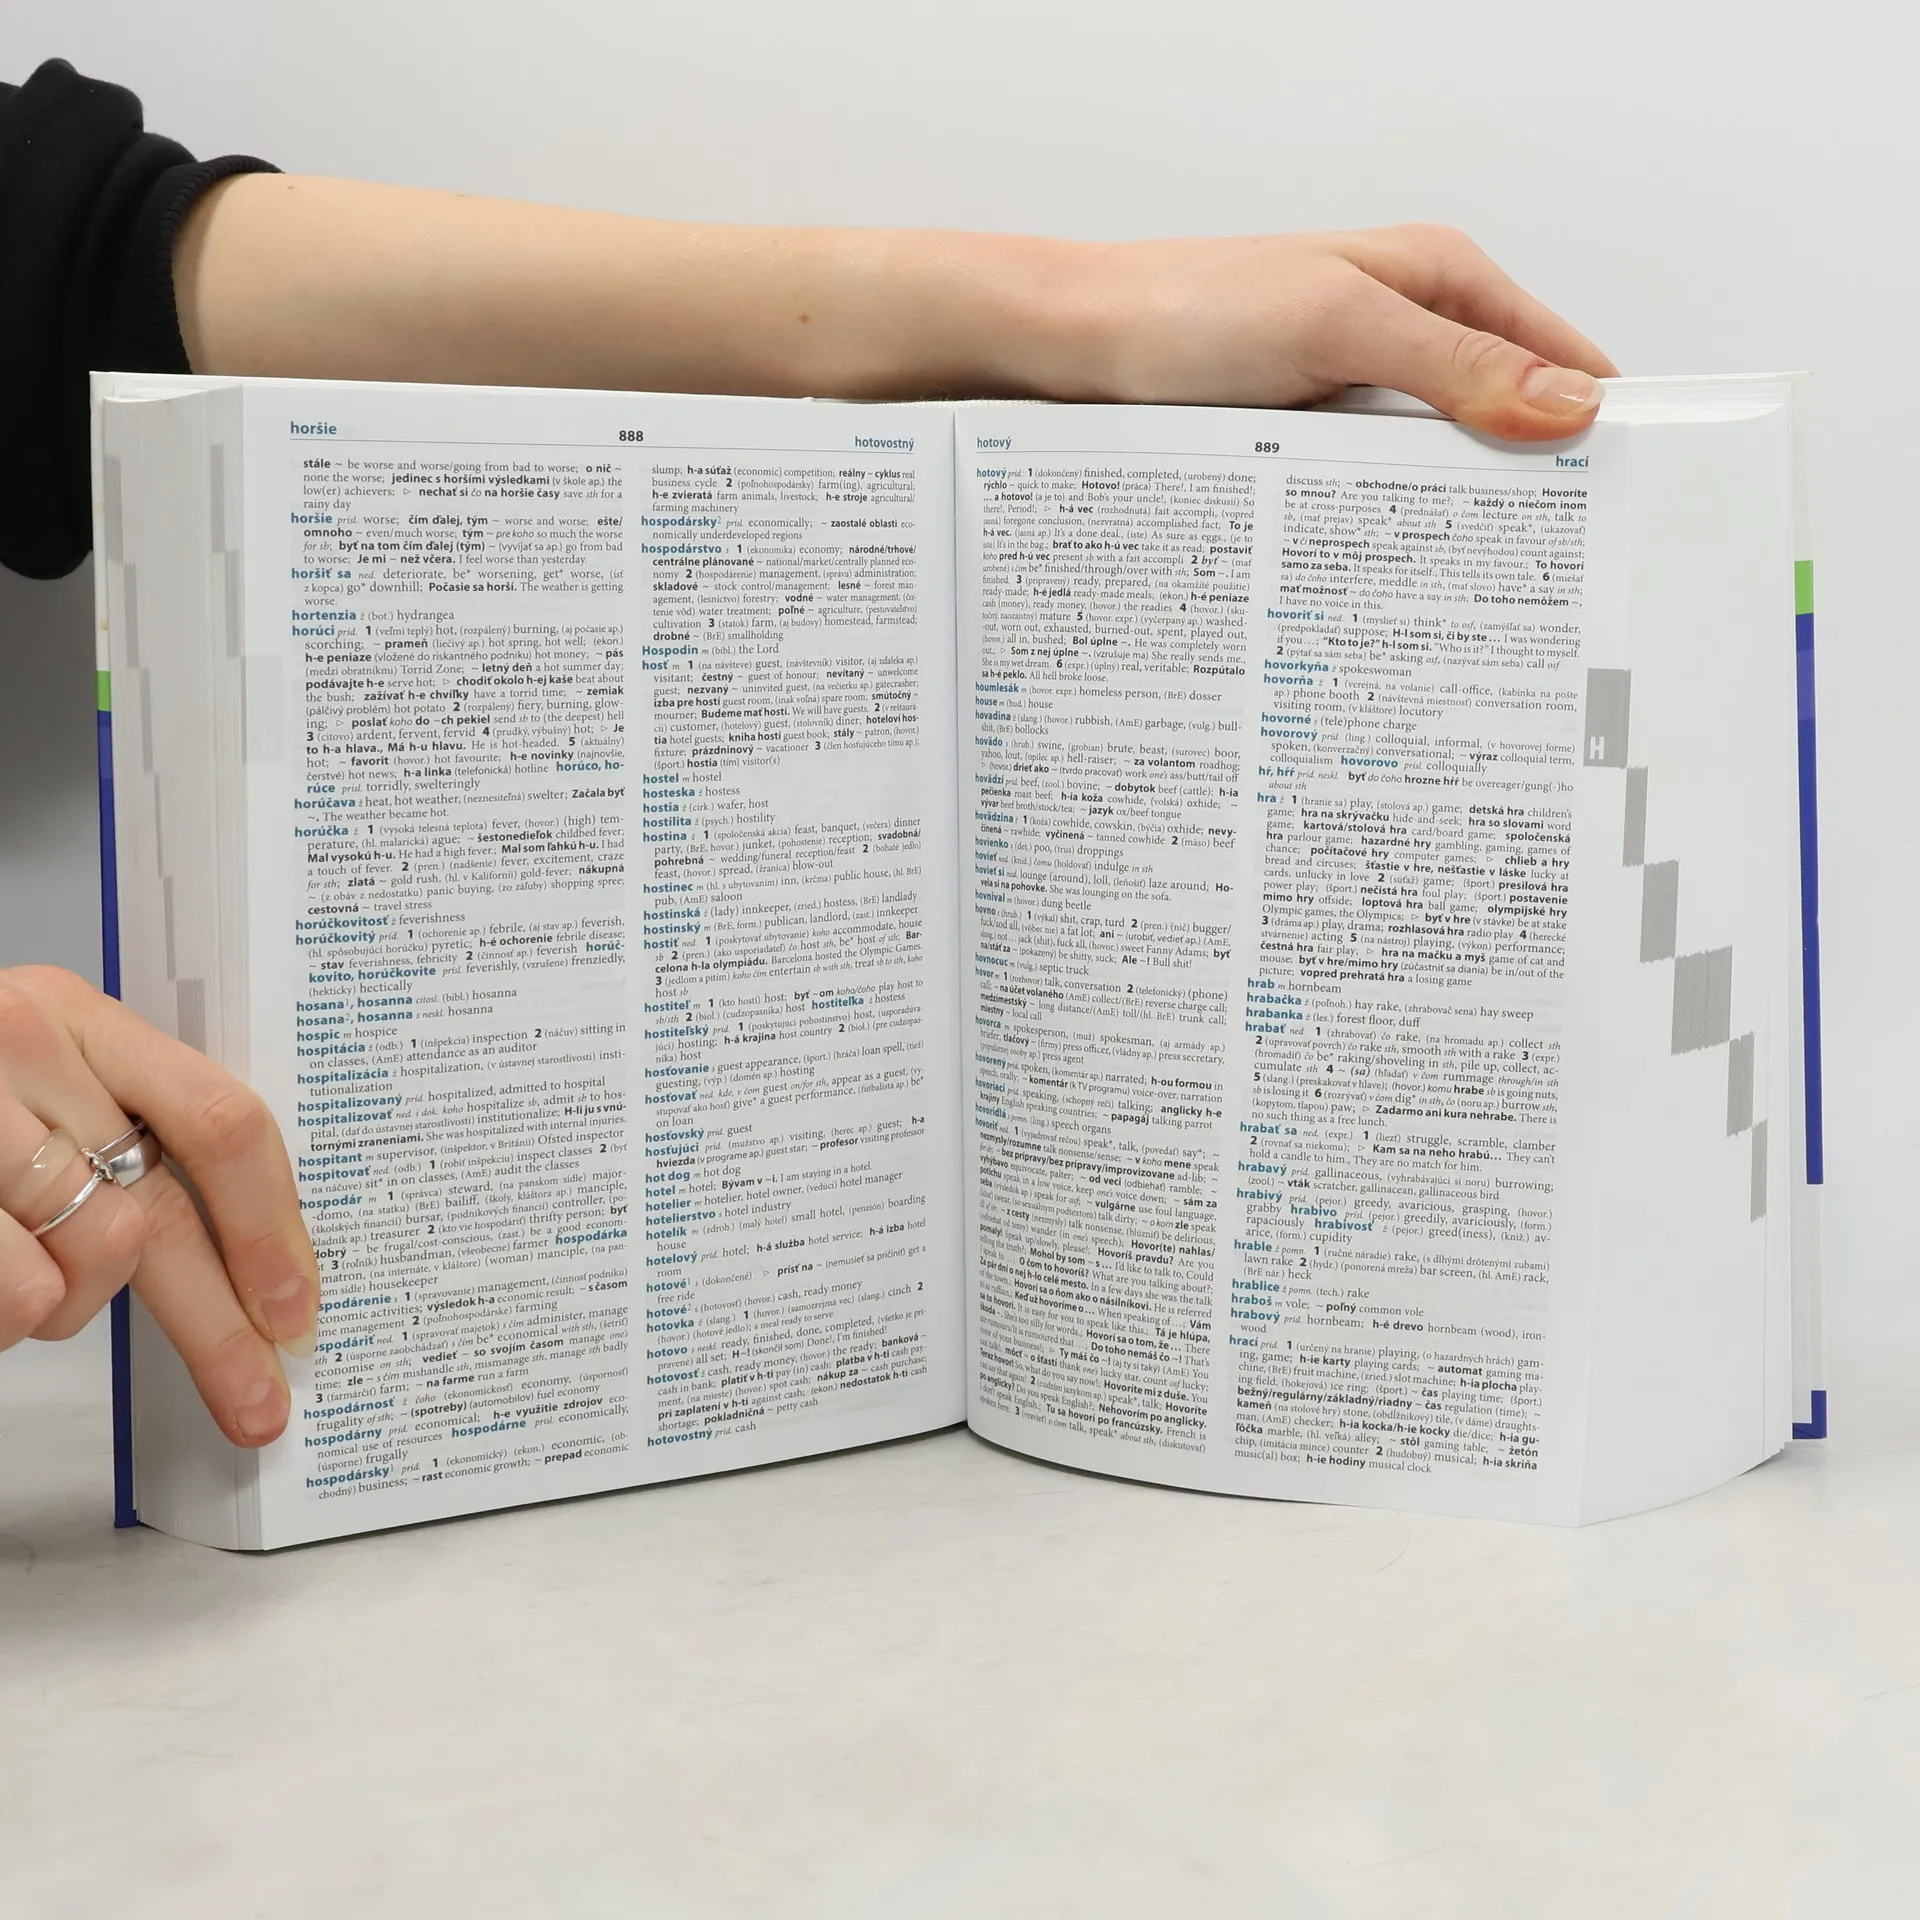 horšie
888
hotovostný
stále ~ be worse and worse/going from bad to worse; o nič ~
none the worse; jedinec s horšími výsledkami (v škole ap.) the
low(er) achievers; ▷ nechať si čo na horšie časy save sth for a
rainy day
horšie prísl. worse; čím ďalej, tým ~ worse and worse; ešte/
omnoho ~ even/much worse; tým ~ pre koho so much the worse
for sb; byť na tom čím ďalej (tým) ~ (vyvíjať sa ap.) go from bad
to worse; Je mi ~ než včera. I feel worse than yesterday.
horšiť sa ned. deteriorate, be* worsening, get* worse, (ísť
z kopca) go* downhill; Počasie sa horší. The weather is getting
worse.
hortenzia ž (bot.) hydrangea
horúci príd. 1 (veľmi teplý) hot, (rozpálený) burning, (aj počasie ap.)
scorching; ~ prameň (liečivý ap.) hot spring, hot well; (ekon.)
h-e peniaze (vložené do riskantného podniku) hot money; ~ pás
(medzi obratníkmi) Torrid Zone; ~ letný deň a hot summer day;
podávajte h-e serve hot; ▷ chodiť okolo h-ej kaše beat about
the bush; zažívať h-e chvíľky have a torrid time; ~ zemiak
(páľčivý problém) hot potato 2 (rozpálený) fiery, burning, glow-
ing; ▷ poslať koho do ~ch pekiel send sb to (the deepest) hell
3 (citovo) ardent, fervent, fervid 4 (prudký, výbušný) hot; ▷ Je
to h-a hlava., Má h-u hlavu. He is hot-headed. 5 (aktuálny)
hot; ~ favorit (hovor.) hot favourite; h-e novinky (najnovšie,
čerstvé) hot news; h-a linka (telefonická) hotline horúco, ho-
rúce prísl. torridly, swelteringly
horúčava ž heat, hot weather, (neznesiteľná) swelter; Začala byť
~. The weather became hot.
horúčka ž 1 (vysoká telesná teplota) fever, (hovor.) (high) tem-
perature, (hl. malarická) ague; ~ šestonedieľok childbed fever;
Mal vysokú h-u. He had a high fever.; Mal som ľahkú h-u. I had
a touch of fever. 2 (pren.) (nadšenie) fever, excitement, craze
for sth; zlatá ~ gold rush, (hl. v Kalifornii) gold-fever; nákupná
~ (z obáv z nedostatku) panic buying, (zo záľuby) shopping spree;
cestovná ~ travel stress
horúčkovitosť ž feverishness
horúčkovitý príd. 1 (ochorenie ap.) febrile, (aj stav ap.) feverish,
(hl. spôsobujúci horúčku) pyretic; h-é ochorenie febrile disease;
~ stav feverishness, febricity 2 (činnosť ap.) feverish horúč-
kovito, horúčkovite prísl. feverishly, (vzrušene) frenziedly,
(hekticky) hectically
hosana¹, hosanna citosl. (bibl.) hosanna
hosana², hosanna s neskl. hosanna
hospic m hospice
hospitácia ž (odb.) 1 (inšpekcia) inspection 2 (náčuv) sitting in
on classes, (AmE) attendance as an auditor
hospitalizácia ž hospitalization, (v ústavnej starostlivosti) insti-
tutionalization
hospitalizovaný príd. hospitalized, admitted to hospital
hospitalizovať ned. i dok. koho hospitalize sb, admit sb to hos-
pital, (dať do ústavnej starostlivosti) institutionalize; H-li ju s vnú-
tornými zraneniami. She was hospitalized with internal injuries.
hospitant m supervisor, (inšpektor, v Británii) Ofsted inspector
hospitovať ned. (odb.) 1 (robiť inšpekciu) inspect classes 2 (byť
na náčuve) sit* in on classes, (AmE) audit the classes
hospodár m 1 (správca) steward, (na panskom sídle) major-
-domo, (na statku) (BrE) bailiff, (školy, kláštora ap.) manciple,
(školských financií) bursar, (podnikových financií) controller, (po-
kladník ap.) treasurer 2 (kto vie hospodáriť) thrifty person; byť
dobrý ~ be frugal/cost-conscious, (zast.) be a good econom-
3 (roľník) husbandman, (všeobecne) farmer hospodárka
matron, (na internáte, v kláštore) (woman) manciple, (na pan-
kom sídle) housekeeper
spodárenie s 1 (spravovanie) management, (činnosť podniku)
conomic activities; výsledok h-a economic result; ~ s časom
ime management 2 (poľnohospodárske) farming
spodáriť ned. 1 (spravovať majetok) s čím administer, manage
sth 2 (úsporne zaobchádzať) s čím be* economical with sth, (šetriť)
economise on sth; vedieť ~ so svojím časom manage one's
time; zle ~ s čím mishandle sth, mismanage sth, manage sth badly
3 (farmárčiť) farm; ~ na farme run a farm
hospodárnosť ž čoho (ekonomickosť) economy, (úspornosť)
frugality of sth; ~ (spotreby) (automobilov) fuel economy
hospodárny príd. economical; h-e využitie zdrojov eco-
nomical use of resources hospodárne prísl. economically,
(úsporne) frugally
hospodársky¹ príd. 1 (ekonomický) (ekon.) economic, (ob-
chodný) business; ~ rast economic growth; ~ prepad economic
slump; h-a súťaž (economic) competition; reálny ~ cyklus real
business cycle 2 (poľnohospodársky) farm(ing), agricultural;
h-e zvieratá farm animals, livestock; h-e stroje agricultural/
farming machinery
hospodársky² prísl. economically; ~ zaostalé oblasti eco-
nomically underdeveloped regions
hospodárstvo s 1 (ekonomika) economy; národné/trhové/
centrálne plánované ~ national/market/centrally planned eco-
nomy 2 (hospodárenie) management, (správa) administration;
skladové ~ stock control/management; lesné ~ forest man-
agement, (lesníctvo) forestry; vodné ~ water management, (čis-
tenie vôd) water treatment; poľné ~ agriculture, (pestovateľstvo)
cultivation 3 (statok) farm, (aj budovy) homestead, farmstead;
drobné ~ (BrE) smallholding
Hospodin m (bibl.) the Lord
hosť m 1 (na návšteve) guest, (návštevník) visitor, (aj zďaleka ap.)
visitant; čestný ~ guest of honour; nevítaný ~ unwelcome
guest; nezvaný ~ uninvited guest, (na večierku ap.) gatecrasher;
izba pre hostí guest room, (inak voľná) spare room; smútočný ~
mourner; Budeme mať hostí. We will have guests. 2 (v reštaurá-
cii) customer, (hotelový) guest, (stolovník) diner; hoteloví hos-
tia hotel guests; kniha hostí guest book; stály ~ patron, (hovor.)
fixture; prázdninový ~ vacationer 3 (člen hosťujúceho tímu ap.);
(šport.) hostia (tím) visitor(s)
hostel m hostel
hosteska ž hostess
hostia ž (cirk.) wafer, host
hostilita ž (psych.) hostility
hostina ž 1 (spoločenská akcia) feast, banquet, (večera) dinner
party, (BrE, hovor.) junket, (pohostenie) reception; svadobná/
pohrebná ~ wedding/funeral reception/feast 2 (bohaté jedlo)
feast, (hovor.) spread, (žranica) blow-out
hostinec m (hl. s ubytovaním) inn, (krčma) public house, (hl. BrE)
pub, (AmE) saloon
hostinská ž (lady) innkeeper, (zried.) hostess, (BrE) landlady
hostinský m (BrE, form.) publican, landlord, (zast.) innkeeper
hostiť ned. 1 (poskytovať ubytovanie) koho accommodate, house
sb 2 (pren.) (ako usporiadateľ) čo host sth, be* host of sth; Bar-
celona h-la olympiádu. Barcelona hosted the Olympic Games.
3 (jedlom a pitím) koho čím entertain sb with sth, treat sb to sth, koho
host sb
hostiteľ m 1 (kto hostí) host; byť ~om koho/čoho play host to
sb/sth 2 (biol.) (cudzopasníka) host hostiteľka ž hostess
hostiteľský príd. 1 (poskytujúci pohostinstvo) host, (usporadúva-
júci) hosting; h-á krajina host country 2 (biol.) (pre cudzopas-
níka) host
hosťovanie s guest appearance, (šport.) (hráča) loan spell, (tiež)
guesting, (výp.) (domén ap.) hosting
hosťovať ned. kde, v čom guest on/for sth, appear as a guest, (vy-
stupovať ako hosť) give* a guest performance, (futbalista ap.) be*
on loan
hosťovský príd. guest
hosťujúci príd. (mužstvo ap.) visiting, (herec ap.) guest; h-a
hviezda (v programe ap.) guest star; ~ profesor visiting professor
hot dog m hot dog
hotel m hotel; Bývam v ~i. I am staying in a hotel.
hotelier m hotelier, hotel owner, (vedúci) hotel manager
hotelierstvo s hotel industry
hotelík m (zdrob.) (malý hotel) small hotel, (penzión) boarding
house
hotelový príd. hotel; h-á služba hotel service; h-á izba hotel
room
hotové¹ s (dokončené) ▷ prísť na ~ (nemusieť sa pričiniť) get a
free ride
hotové² s (hotovosť) (hovor.) cash, ready money
hotovka ž (slang.) 1 (hovor.) (samozrejmá vec) (slang.) cinch 2
(hovor.) (hotové jedlo); a meal ready to serve
hotovo s neskl. ready, finished, done, completed, (všetko je pri-
pravené) all set; H~! (skončil som) Done!, I'm finished!
hotovosť ž cash, ready money, (hovor.) the ready; banková ~
cash in bank; platiť v h-ti pay (in) cash; platba v h-ti cash pay-
ment, (na mieste) (hovor.) spot cash; nákup za ~ cash purchase;
pri zaplatení v h-ti against cash; (ekon.) nedostatok h-ti cash
shortage; pokladničná ~ petty cash
hotovostný príd. cash
hotový
889
hrací
hotový príd. 1 (dokončený) finished, completed, (urobený) done;
rýchlo ~ quick to make; Hotovo! (práca) There!, I am finished!;
... a hotovo! (a je to) and Bob's your uncle!, (koniec diskusií) So
there!, Period!; ▷ h-á vec (rozhodnutá) fait accompli, (vopred
jasná) foregone conclusion, (nezvratná) accomplished fact; To je
h-á vec. (jasná ap.) It's a done deal., (iste) As sure as eggs., (je to
isté) It's in the bag.; brať to ako h-ú vec take it as read; postaviť
koho pred h-ú vec present sb with a fait accompli 2 byť ~ (mať
urobené) s čím be* finished/through/over with sth; Som ~. I am
finished. 3 (pripravený) ready, prepared, (na okamžité použitie)
ready-made; h-é jedlá ready-made meals; (ekon.) h-é peniaze
cash (money), ready money, (hovor.) the readies 4 (hovor.) (sku-
točný, naozajstný) mature 5 (hovor. expr.) (vyčerpaný ap.) washed-
-out, worn out, exhausted, burned-out, spent, played out,
(hovor.) all in, bushed; Bol úplne ~. He was completely worn
out.; ▷ Som z nej úplne ~. (vzrušuje ma) She really sends me.,
She is my wet dream. 6 (expr.) (úplný) real, veritable; Rozpútalo
sa h-é peklo. All hell broke loose.
houmlesák m (hovor. expr.) homeless person, (BrE) dosser
house m (hud.) house
hovadina ž (slang.) (hovor.) rubbish, (AmE) garbage, (vulg.) bull-
shit, (BrE) bollocks
hovädo s (hrub.) swine, (grobian) brute, beast, (surovec) boor,
yahoo, lout, (opilec ap.) hell-raiser; ~ za volantom roadhog;
▷ (hovor.) drieť ako ~ (tvrdo pracovať) work one's ass/butt/tail off
hovädzí príd. beef, (zool.) bovine; ~ dobytok beef (cattle); h-ia
pečienka roast beef; h-ia koža cowhide, (volská) oxhide; ~
vývar beef broth/stock/tea; ~ jazyk ox/beef tongue
hovädzina ž 1 (koža) cowhide, cowskin, (býčia) oxhide; nevy-
činená ~ rawhide; vyčinená ~ tanned cowhide 2 (mäso) beef
hovienko s (det.) poo, (trus) droppings
hovieť ned. (kniž.) čomu (holdovať) indulge in sth
hovieť si ned. lounge (around), loll, (leňošiť) laze around; Ho-
vela si na pohovke. She was lounging on the sofa.
hovnivál m (hovor.) dung beetle
hovno s (hrub.) 1 (výkal) shit, crap, turd 2 (pren.) (nič) bugger/
fuck/sod all, (vôbec nie) a fat lot; ani ~ (urobiť, vedieť ap.) (AmE,
slang.) not... jack (shit), fuck all, (hovor.) sweet Fanny Adams; byť
na/stáť za ~ (pokazený) be shitty, suck; Ale ~! Bull shit!
hovnocuc m (vulg.) septic truck
hovor m 1 (rozhovor) talk, conversation 2 (telefonický) (phone)
call; ~ na účet volaného (AmE) collect/(BrE) reverse charge call;
medzimestský ~ long distance/(AmE) toll/(hl. BrE) trunk call;
miestny ~ local call
hovorca m spokesperson, (muž) spokesman, (aj armády ap.)
briefer; tlačový ~ (firmy) press officer, (vládny ap.) press secretary,
(populárnej osoby ap.) press agent
hovorený príd. spoken, (komentár ap.) narrated; h-ou formou in
speech, orally; ~ komentár (k TV programu) voice-over, narration
hovoriaci príd. speaking, (schopný reči) talking; anglicky h-e
krajiny English speaking countries; ~ papagáj talking parrot
hovoridlá s pomn. (ling.) speech organs
hovoriť ned. 1 (vyjadrovať rečou) speak*, talk, (povedať) say*; ~
nezmysly/rozumne talk nonsense/sense; ~ v koho mene speak
for sb; ~ bez prípravy/bez prípravy/improvizovane ad-lib; ~
vyhýbavo equivocate, palter; ~ od veci (odbiehať) ramble; ~
potichu speak in a low voice, keep one's voice down; ~ sám za
seba (výsledok ap.) speak for osf; ~ vulgárne use foul language,
(kliať) swear, (so sexuálnym podtextom) talk dirty; ~ o kom zle speak
ill of sb; ~ z cesty (nezmysly) talk nonsense, (blúzniť) be delirious,
(odbiehať od témy) wander (in one's speech); Hovor(te) nahlas/
pomaly! Speak up/slowly, please!; Hovoríš pravdu? Are you
telling the truth?; Mohol by som ~ s... I'd like to talk to, Could
I speak to...; O čom to hovoríš? What are you talking about?;
Za pár dní o nej h-lo celé mesto. In a few days she was the talk
of the town.; Hovorí sa o ňom ako o násilníkovi. He is referred
to as ruffian.; Keď už hovoríme o... When speaking of...; Vám
sa to hovorí. It is easy for you to speak like this.; Tá je hlúpa,
škoda ~. She's too silly for words.; Hovorí sa o tom, že... There
are rumours/It is rumoured that...; Do toho nemáš čo ~! That's
none of your business!; ▷ Ty máš čo ~! (aj ty si taký) (AmE) You
can talk!; môcť ~ o šťastí thank one's lucky star, count osf lucky;
Teraz hovor! So, what do you say now!; Hovoríte mi z duše. You
can say that again! 2 (cudzím jazykom ap.) speak*, talk; Hovoríte
po anglicky? Do you speak English?; Nehovorím po anglicky.
I don't speak English.; Tu sa hovorí po francúzsky. French is
spoken here. 3 (vravieť) o čom talk, speak* about sth, (diskutovať)
discuss sth; ~ obchodne/o práci talk business/shop; Hovoríte
so mnou? Are you talking to me?; ~ každý o niečom inom
be at cross-purposes 4 (prednášať) o čom lecture on sth, talk to
sb, (mať prejav) speak* about sth 5 (svedčiť) speak*, (ukazovať)
indicate, show* sth; ~ v prospech čoho speak in favour of sb/sth;
~ v či neprospech speak against sb, (byť nevýhodou) count against;
Hovorí to v môj prospech. It speaks in my favour.; To hovorí
samo za seba. It speaks for itself., This tells its own tale. 6 (miešať
sa) do čoho interfere, meddle in sth, (mať slovo) have* a say in sth;
mať možnosť ~ do čoho have a say in sth; Do toho nemôžem ~.
I have no voice in this.
hovoriť si ned. 1 (myslieť si) think* to osf, (zamýšľať sa) wonder,
(predpokladať) suppose; H-l som si, či by ste... I was wondering
if you...; "Kto to je?" h-l som si. "Who is it?" I thought to myself.
2 (pýtať sa sám seba) be* asking osf, (nazývať sám seba) call osf
hovorkyňa ž spokeswoman
hovorňa ž 1 (verejná, na volanie) call-office, (kabínka na pošte
ap.) phone booth 2 (návštevná miestnosť) conversation room,
visiting room, (v kláštore) locutory
hovorné s (tele)phone charge
hovorový príd. (ling.) colloquial, informal, (v hovorovej forme)
spoken, (konverzačný) conversational; ~ výraz colloquial term,
colloquialism hovorovo prísl. colloquially
hŕ, hŕŕ príd. neskl. byť do čoho hrozne hŕŕ be overeager/gung(-)ho
about sth
hra ž 1 (hranie sa) play, (stolová ap.) game; detská hra children's
game; hra na skrývačku hide-and-seek; hra so slovami word
game; kartová/stolová hra card/board game; spoločenská
hra parlour game; hazardné hry gambling, gaming, games of
chance; počítačové hry computer games; ▷ chlieb a hry
bread and circuses; šťastie v hre, nešťastie v láske lucky at
cards, unlucky in love 2 (súťaž) game; (šport.) presilová hra
power play; (šport.) nečistá hra foul play; (šport.) postavenie
mimo hry offside; loptová hra ball game; olympijské hry
Olympic games, the Olympics; ▷ byť v hre (v stávke) be at stake
3 (dráma ap.) play, drama; rozhlasová hra radio play 4 (herecké
stvárnenie) acting 5 (na nástroj) playing, (výkon) performance;
čestná hra fair play; ▷ hra na mačku a myš game of cat and
mouse; byť v hre/mimo hry (zúčastniť sa diania) be in/out of the
picture; vopred prehratá hra a losing game
hrab m hornbeam
hrabačka ž (poľnoh.) hay rake, (zhrabovač sena) hay sweep
hrabanka ž (les.) forest floor, duff
hrabať ned. 1 (zhrabovať) čo rake, (na hromadu ap.) collect sth
2 (upravovať povrch) čo rake sth, smooth sth with a rake 3 (expr.)
(hromadiť) čo be* raking/shoveling in sth, pile up, collect, ac-
cumulate sth 4 ~ (sa) (hľadať) v čom rummage through/in sth
5 (slang.) (preskakovať v hlave); (hovor.) komu hrabe sb is going nuts,
sb is losing it 6 (rozrývať) v čom dig* in sth, čo (noru ap.) burrow sth,
(kopytom, tlapou) paw; ▷ Zadarmo ani kura nehrabe. There is
no such thing as a free lunch.
hrabať sa ned. (expr.) 1 (liezť) struggle, scramble, clamber
2 (rovnať sa niekomu); ▷ Kam sa na neho hrabú... They can't
hold a candle to him., They are no match for him.
hrabavý príd. gallinaceous, (vyhrabávajúci si noru) burrowing;
(zool.) ~ vták scratcher, gallinacean, gallinaceous bird
hrabivý príd. (pejor.) greedy, avaricious, grasping, (hovor.)
grabby hrabivo prísl. (pejor.) greedily, avariciously, (form.)
rapaciously hrabivosť ž (pejor.) greed(iness), (kniž.) av-
arice, (form.) cupidity
hrable ž pomn. 1 (ručné náradie) rake, (s dlhými drôtenými zubami)
lawn rake 2 (hydr.) (ponorená mreža) bar screen, (hl. AmE) rack,
(BrE nár.) heck
hrablice ž pomn. (tech.) rake
hraboš m vole; ~ poľný common vole
hrabový príd. hornbeam; h-é drevo hornbeam (wood), iron-
wood
hrací príd. 1 (určený na hranie) playing, (o hazardných hrách) gam-
ing, game; h-ie karty playing cards; ~ automat gaming ma-
chine, (BrE) fruit machine, (zried.) slot machine; h-ia plocha play-
ing field, (hokejová) ice ring; (šport.) ~ čas playing time; (šport.)
bežný/regulárny/základný/riadny ~ čas regulation (time); ~
kameň (na stolové hry) stone, (obdĺžnikový) tile, (v dáme) draughts-
man, (AmE) checker; h-ia kocka/h-ie kocky die/dice; h-ia gu-
ľôčka marble, (hl. veľká) alley; ~ stôl gaming table; ~ žetón
chip, (imitácia mince) counter 2 (hudobný) musical; h-ia skriňa
music(al) box; h-ie hodiny musical clock
H